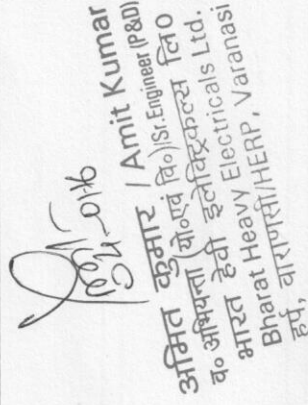 अमित कुमार / Amit Kumar
व० अभियन्ता (यो०एवं वि०)/Sr.Engineer (P&D)
भारत हेवी इलेक्ट्रिकल्स लि०
Bharat Heavy Electricals Ltd.
हर्प, वाराणसी/HERP, Varanasi